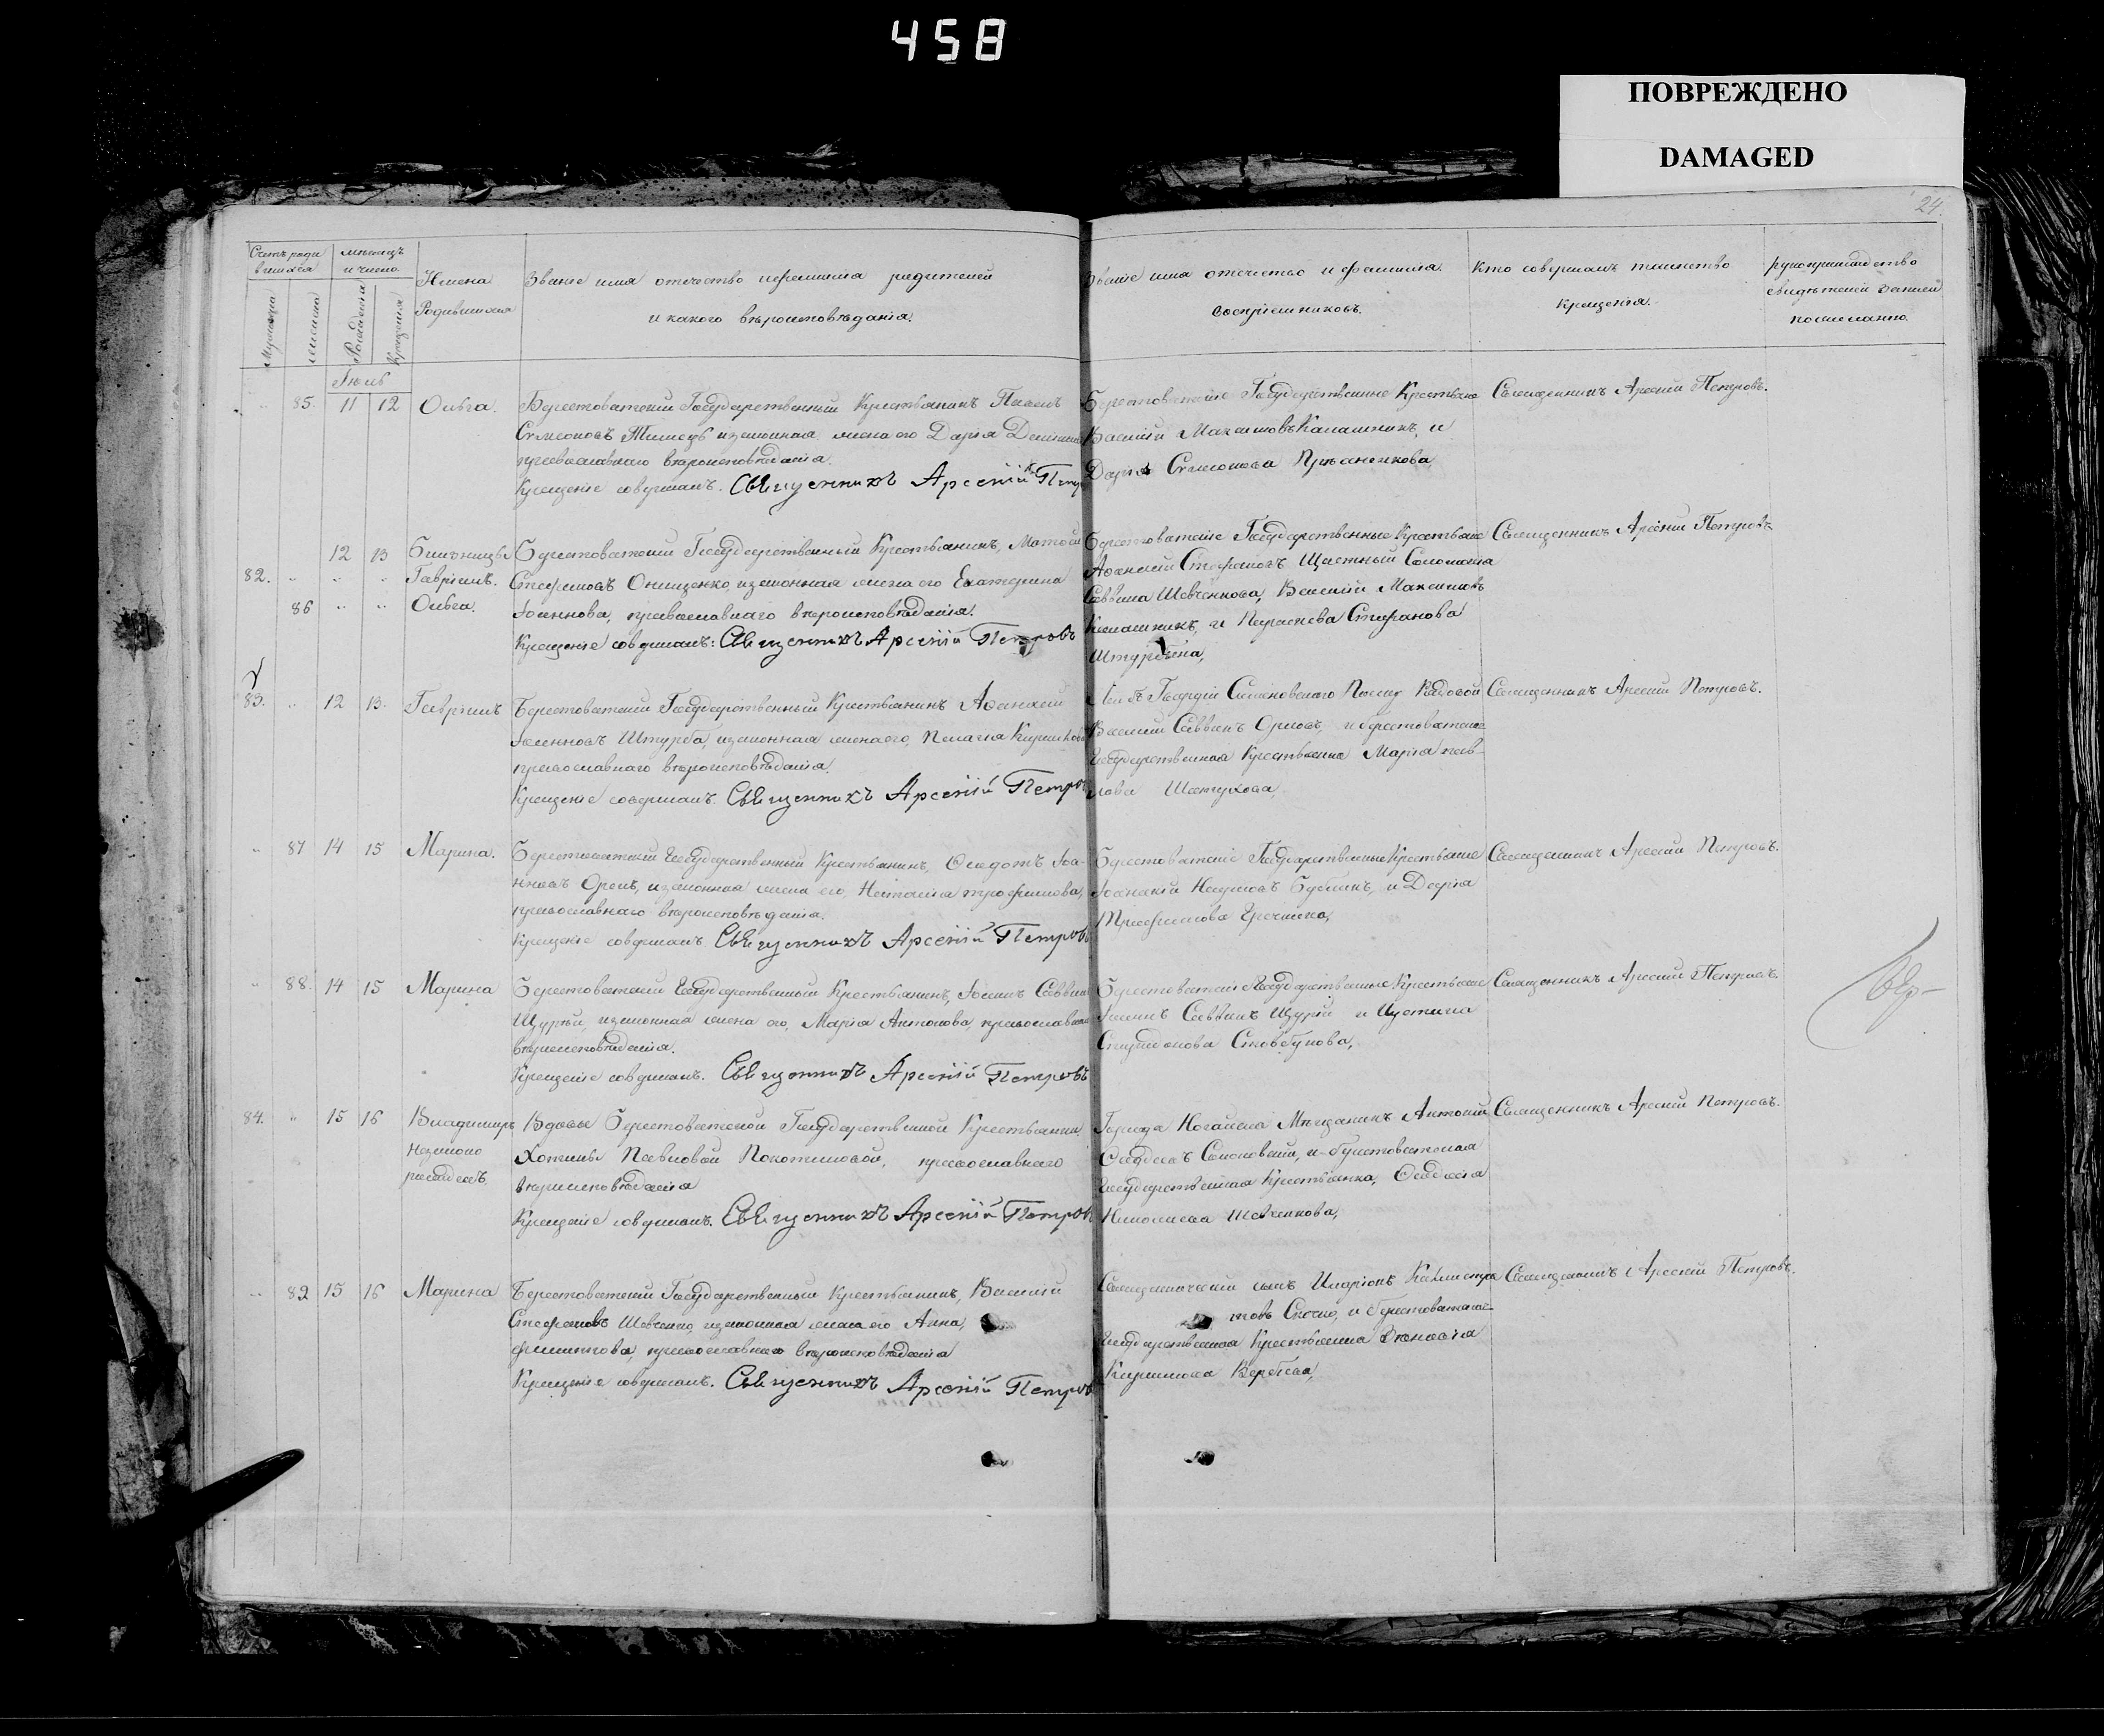 458
ПОВРЕЖДЕНО
DAMAGED
24.
Счетъ роди
вшихся
мѣсяцъ
и число.
Имена
Родившихся
Званіе имя отечество и фамилія родителей
и какого вѣроисповѣданія.
Званіе имя отечество и фамилія
воспріемниковъ.
Кто совершалъ таинство
крещенія.
рукоприкладство
свидѣтелей записи
по желанію.
Мужеска
женска
Рожденія
Крещенія
Іюль
85. 11 12 Ольга.
Берестоватскій Государственный Крестьянинъ Павелъ
Симеоновъ законная жена его Дарія
православнаго вѣроисповѣданія.
Крещеніе совершалъ. Священникъ Арсеній Петр
Берестоватскіе Государственные Крестьяне
Василій Максимовъ Калашникъ, и
Дарія Симеонова
Священникъ Арсеній Петровъ.
12 13 Близнецы
82. " " Гавріилъ.
86 " " Ольга.
Берестоватскій Государственный Крестьянинъ, Матвей
Стефановъ Онищенко, и законная жена его Екатерина
Іоаннова, православнаго вѣроисповѣданія.
Крещеніе совершалъ: Священникъ Арсеній Петровъ
Берестоватскіе Государственные Крестьяне
Афанасій Стефановъ Щастный Соломонія
Саввина Шевченкова, Василій Максимовъ
Калашникъ, и Параскева Стефанова
Штурбина,
Священникъ Арсеній Петровъ
83. " 12 13. Гавріилъ
Берестоватскій Государственный Крестьянинъ Афанасій
Іоанновъ Штурба, и законная жена его, Пелагія Кирилова
православнаго вѣроисповѣданія.
Крещеніе совершалъ. Священникъ Арсеній Петров
Василій Саввинъ Орловъ, и берестоватская
Государственная Крестьянка Марія пав-
лова
Священникъ Арсеній Петровъ.
" 87 14 15 Марина.
Берестоватскій Государственный Крестьянинъ, Феодотъ Іоа-
нновъ Орелъ, и законная жена его, Наталія трофимова,
православнаго вѣроисповѣданія.
Крещеніе совершалъ. Священникъ Арсеній Петровъ
Берестоватскіе Государственные Крестьяне
Наумовъ Бубликъ, и Дарія
Трофимова Гречкина,
Священникъ Арсеній Петровъ.
" 88. 14 15 Марина
Берестоватскій Государственный Крестьянинъ, Іоаннъ Саввинъ
Щурій, и законная жена его, Марія Антонова, православнаго
вѣроисповѣданія.
Крещеніе совершалъ. Священникъ Арсеній Петровъ
Берестоватскіе Государственные Крестьяне
Іоаннъ Саввинъ Щурій и Иустина
Спиридонова Стовбунова,
Священникъ Арсеній Петровъ.
84. " 15 16 Владимиръ
незаконо
рожденъ.
Вдовы Берестоватской Государственной Крестьянки
Хотины Павловой Покотиловой, православнаго
вѣроисповѣданія
Крещеніе совершалъ. Священникъ Арсеній Петров
Города Ногайска Мѣщанинъ Антоній
и берестоватская
Государственная Крестьянка, Феодосія
Николаева Шевченкова,
Священникъ Арсеній Петровъ.
" 89 15 16 Марина
Берестоватскій Государственный Крестьянинъ, Василій
Стефановъ Шевченко, и законная жена его Анна,
филиппова, православнаго вѣроисповѣданія
Крещеніе совершалъ. Священникъ Арсеній Петров
Священническій сынъ Иларіонъ Калистра
товъ и берестоватская
Государственная Крестьянка
Кирилова
Священникъ Арсеній Петровъ.